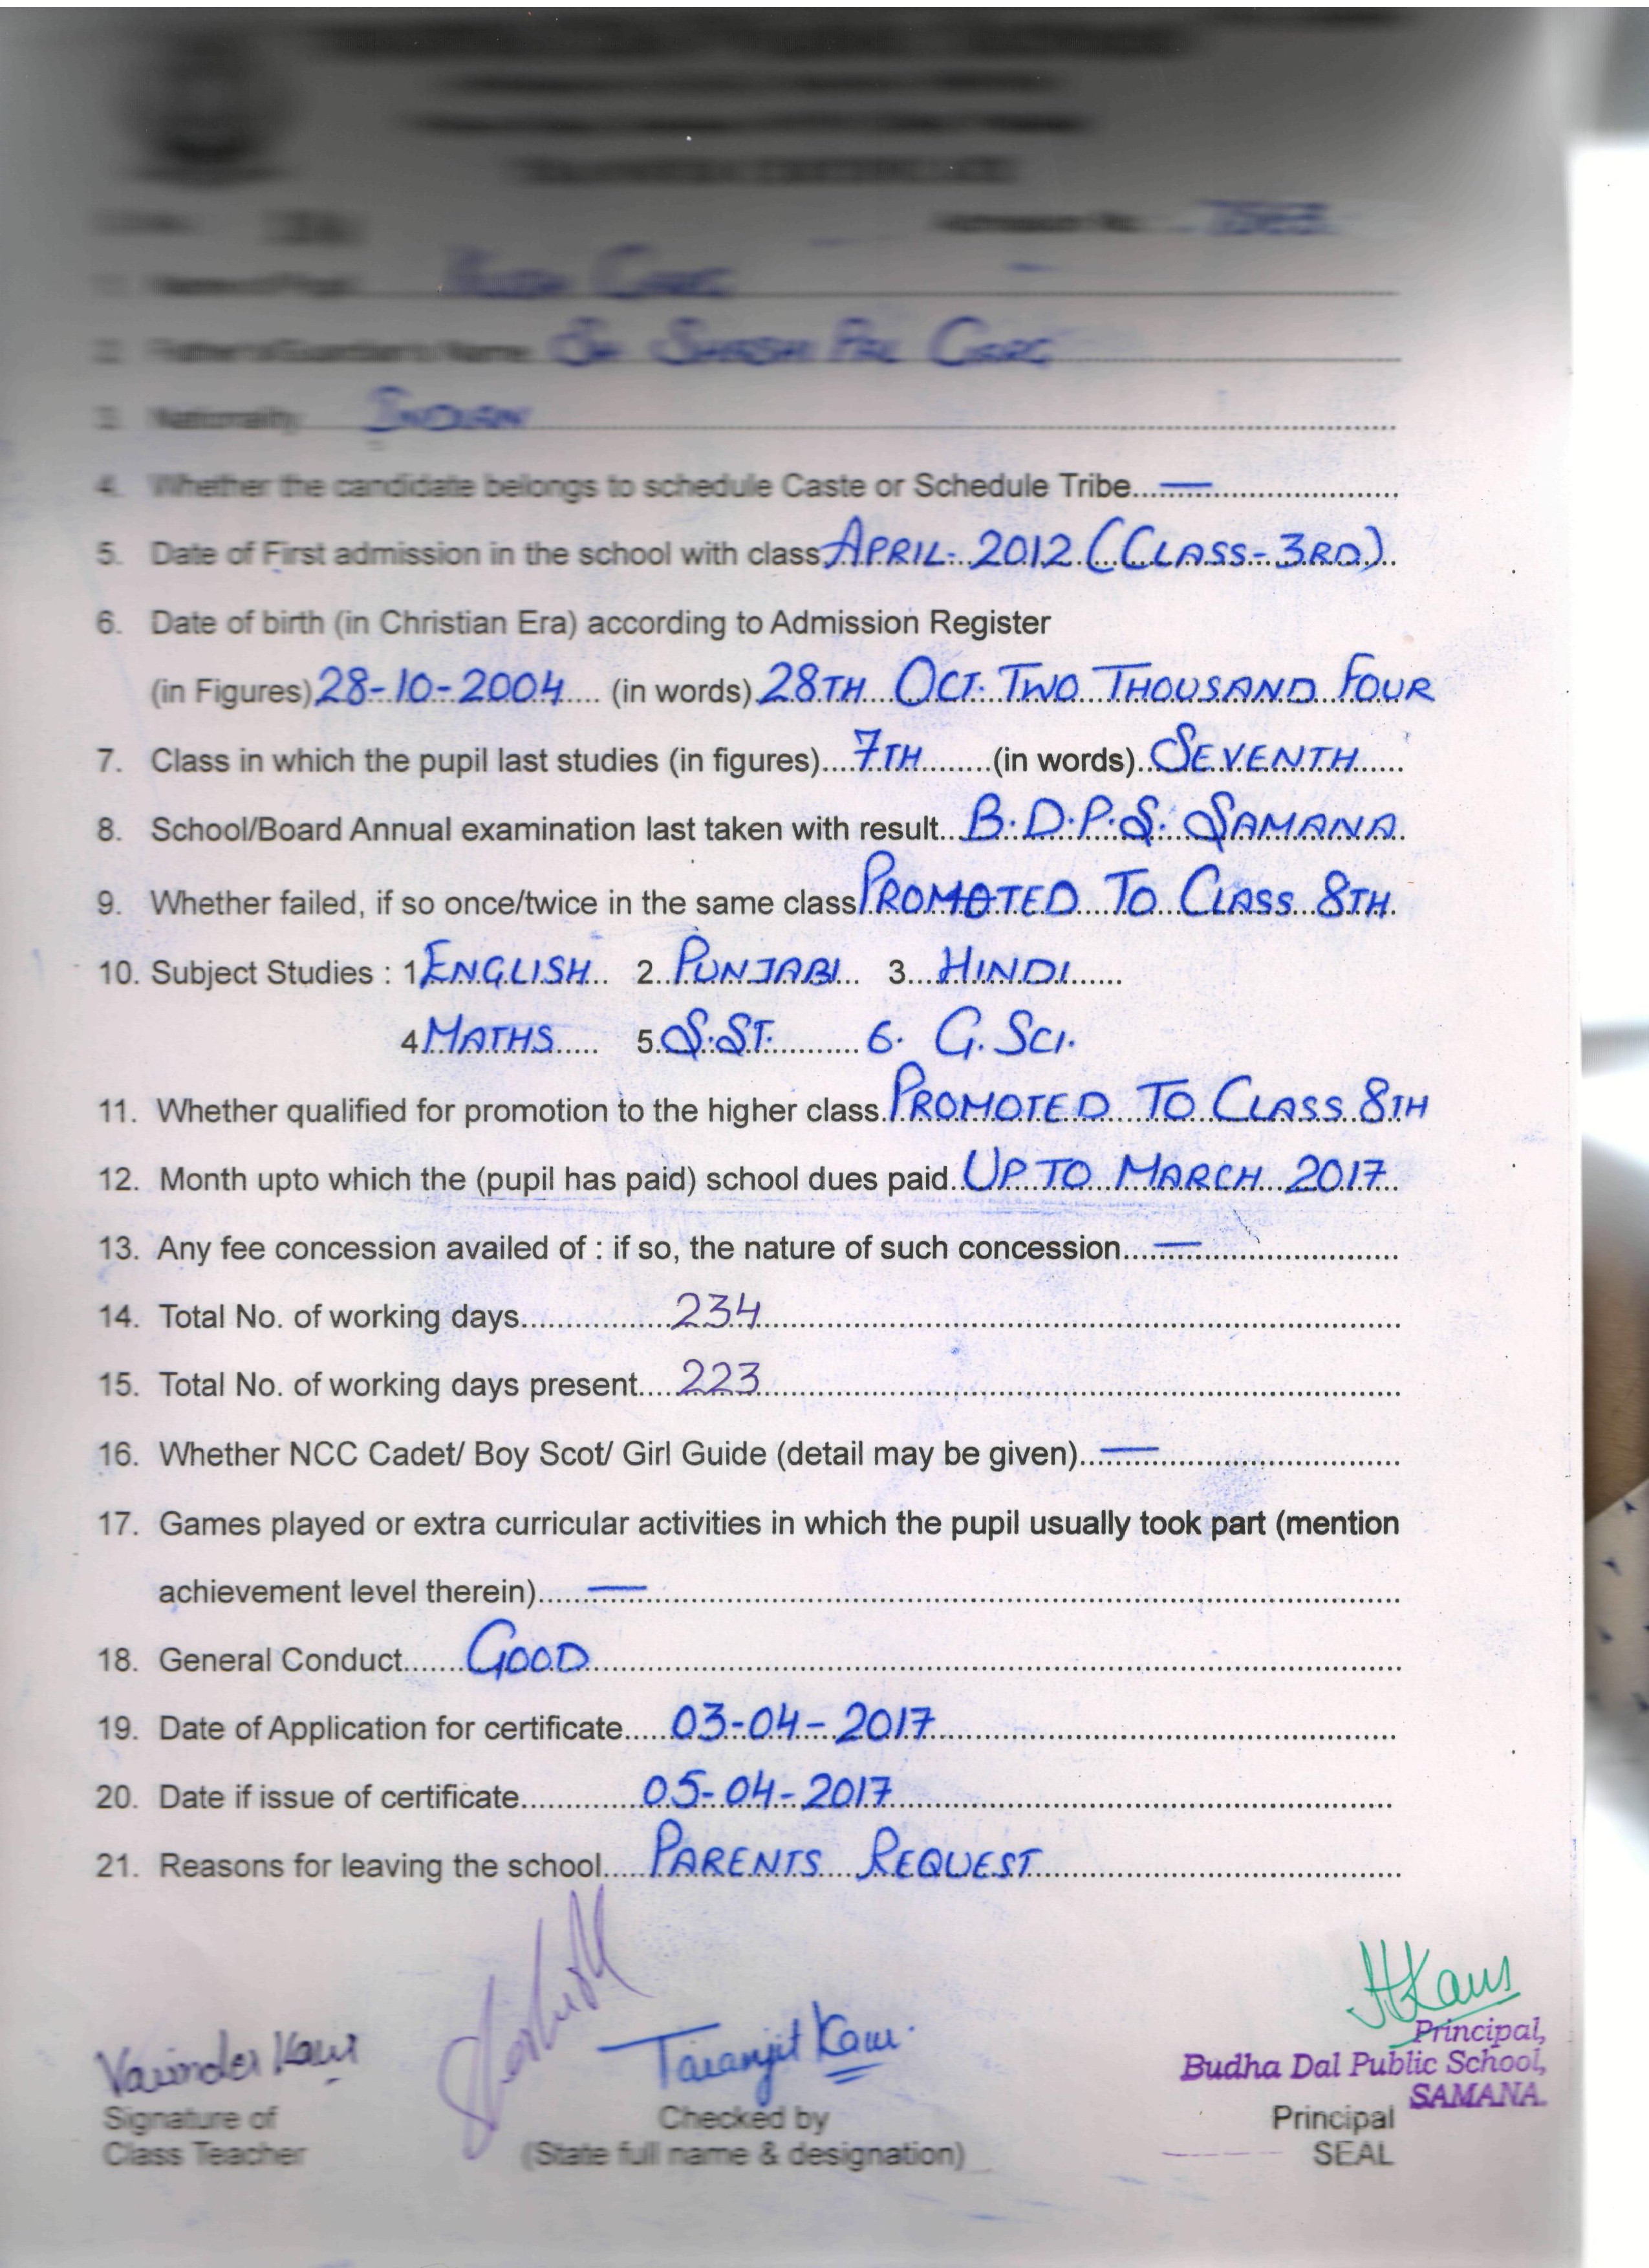 TRANSFER CERTIFICATE
Admission No.
1. Name of Pupil GARG
2. Father's/Guardian's Name Sh SHASHI PAL GARG
3. Nationality INDIAN
4. Whether the candidate belongs to schedule Caste or Schedule Tribe....—....
5. Date of First admission in the school with class APRIL- 2012 (CLASS- 3RD)
6. Date of birth (in Christian Era) according to Admission Register
(in Figures) 28-10-2004 .... (in words) 28TH OCT. TWO THOUSAND FOUR
7. Class in which the pupil last studies (in figures)....7TH........(in words).SEVENTH......
8. School/Board Annual examination last taken with result...B.D.P.S. SAMANA.
9. Whether failed, if so once/twice in the same class PROMOTED TO CLASS 8TH.
10. Subject Studies : 1 ENGLISH.. 2..PUNJABI... 3...HINDI......
4 MATHS..... 5.S.ST........... 6. G. SCI.
11. Whether qualified for promotion to the higher class.PROMOTED TO CLASS 8TH
12. Month upto which the (pupil has paid) school dues paid..UPTO MARCH 2017..
13. Any fee concession availed of : if so, the nature of such concession....—....
14. Total No. of working days................234................
15. Total No. of working days present.....223................
16. Whether NCC Cadet/ Boy Scot/ Girl Guide (detail may be given)..—....
17. Games played or extra curricular activities in which the pupil usually took part (mention
achievement level therein)......—................
18. General Conduct.......GOOD................
19. Date of Application for certificate.....03-04-2017................
20. Date if issue of certificate.............05-04-2017................
21. Reasons for leaving the school.....PARENTS REQUEST................
Varinder Kaur
Taranjit Kaur.
HKaur
Principal,
Budha Dal Public School,
SAMANA.
Signature of
Class Teacher
Checked by
(State full name & designation)
Principal
SEAL